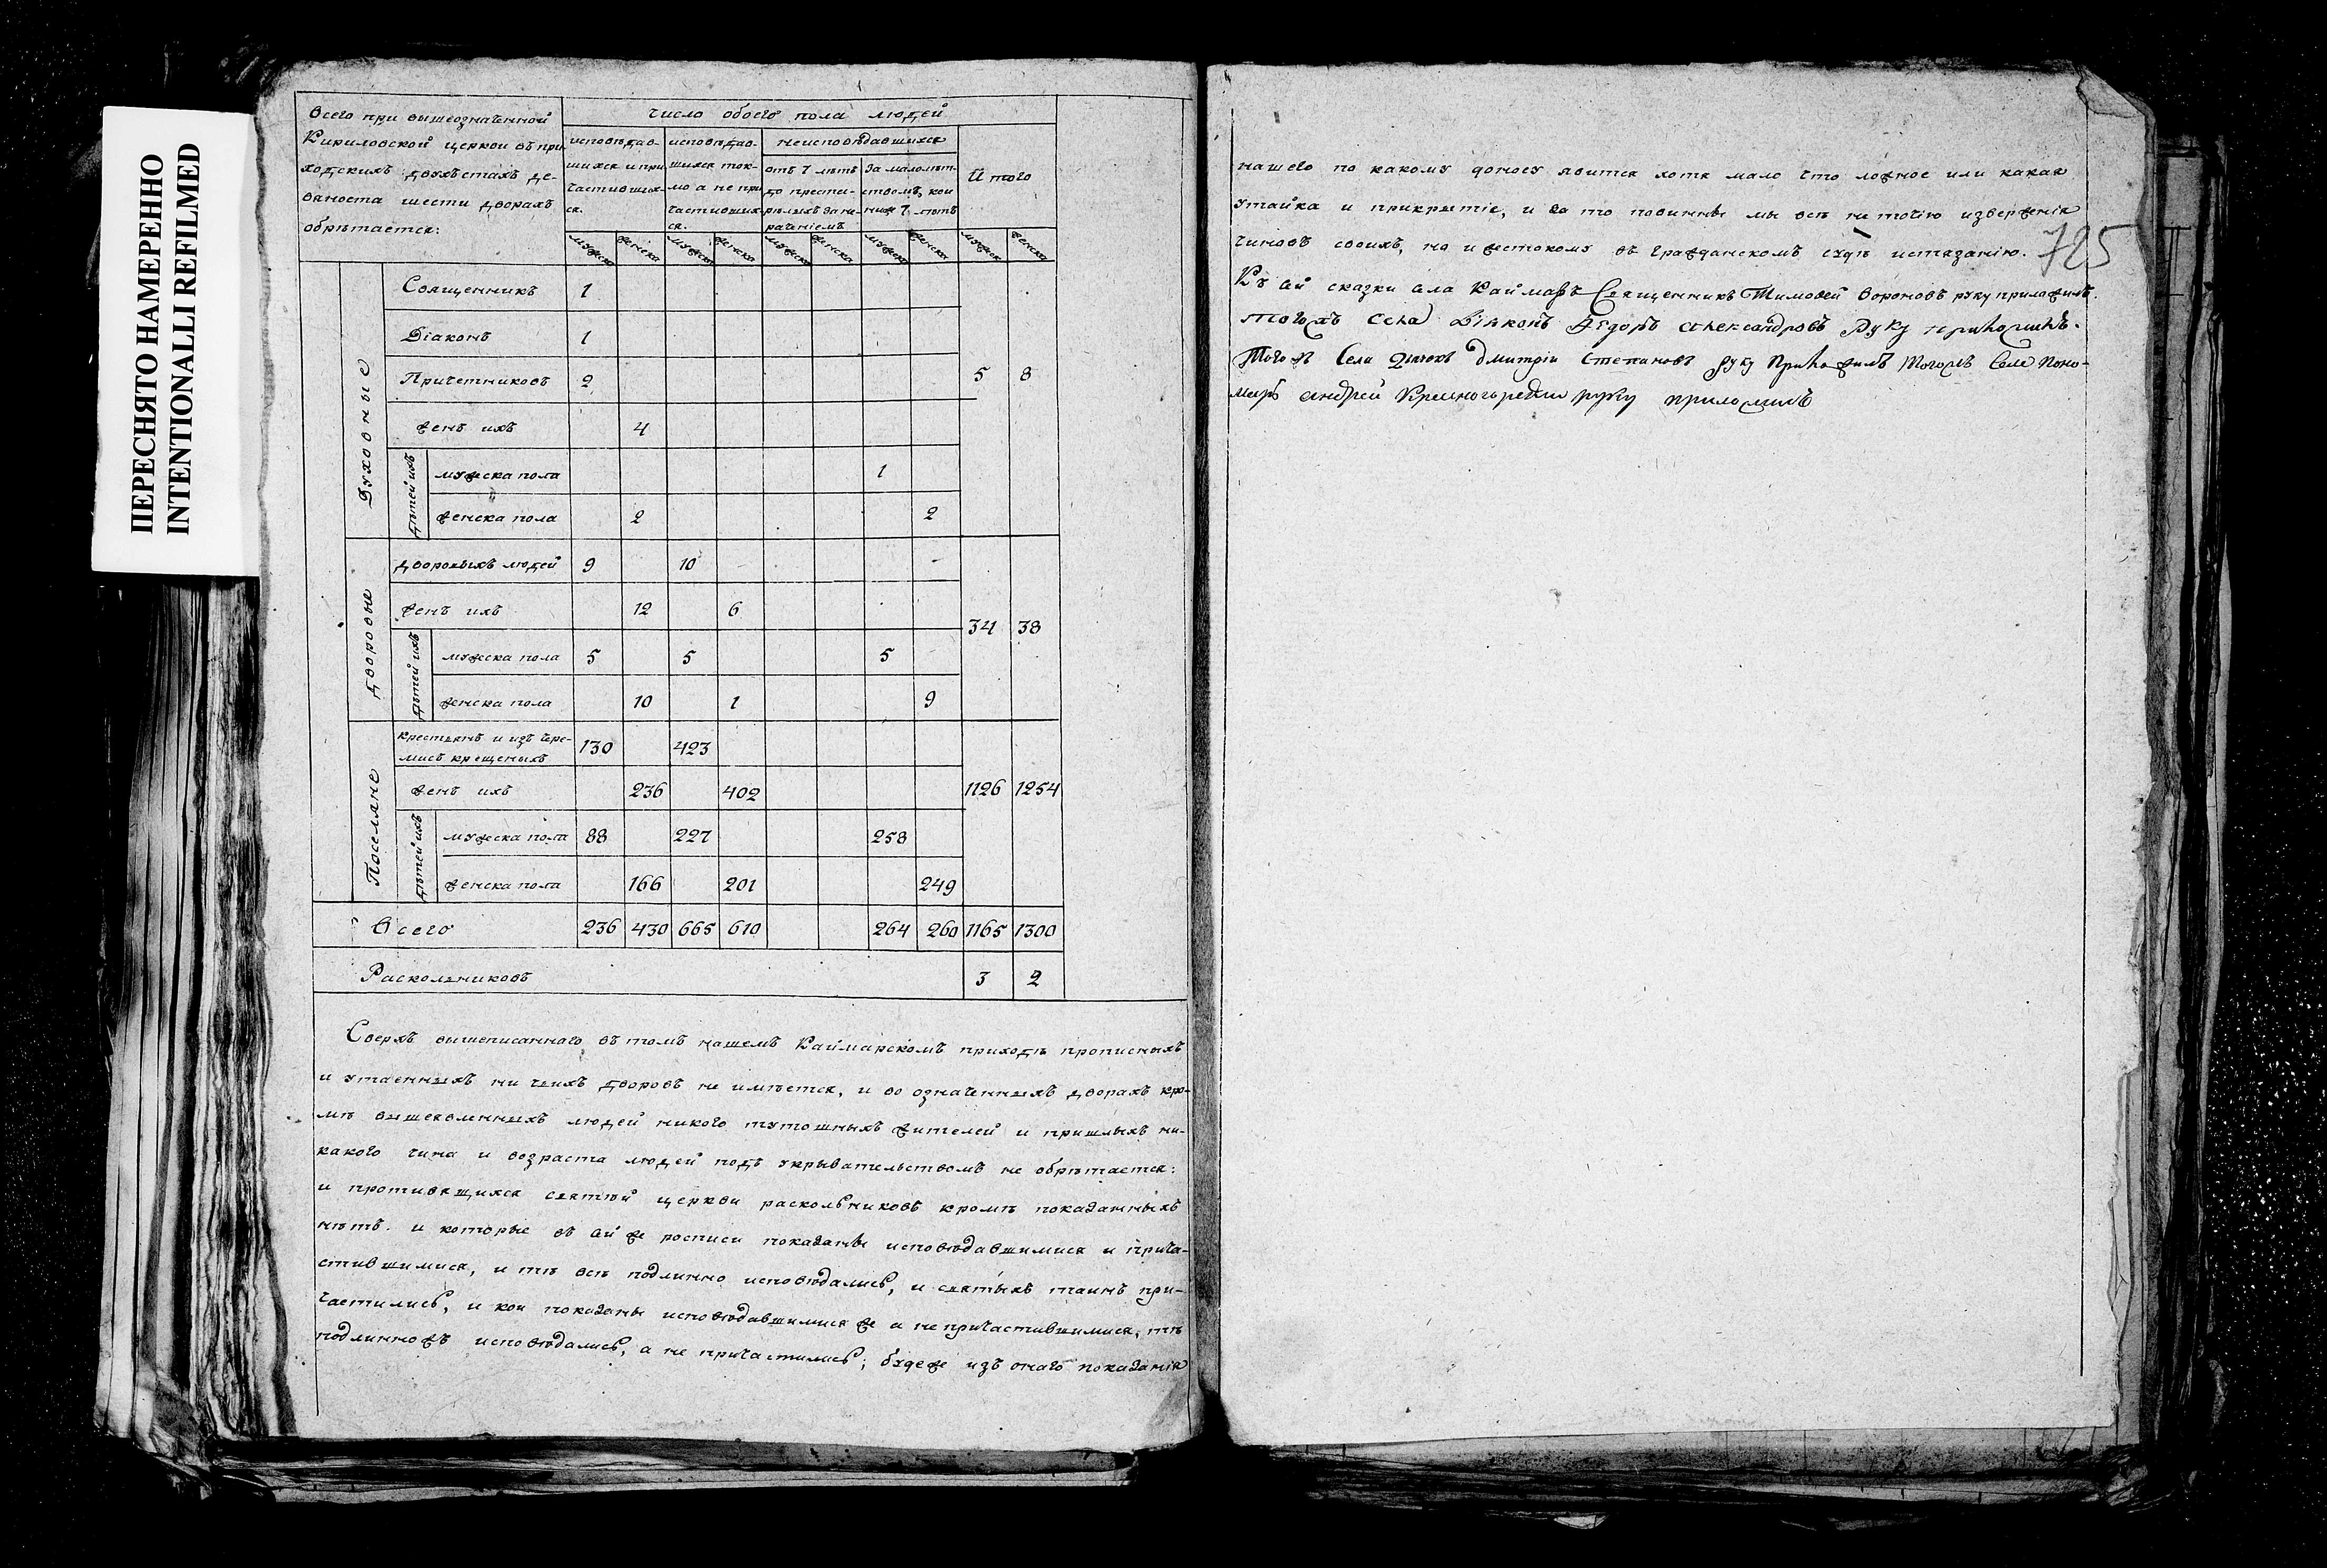 ПЕРЕСНЯТО НАМЕРЕННО
INTENTIONALLI REFILMED
Всего при вышеозначенной
Кириловской церкви въ при
ходскихъ двухъстахъ де-
вяноста шести дворахъ
обрѣтается:
число обоего пола людей
исповѣдав-
шихся и при
частивших-
ся.
исповѣдав-
шихся ток-
мо а не при
частивших
ся.
неисповѣдавшихся
отъ 7 лѣтъ
до преста-
рѣлыхъ за не-
раченіемъ
За малолѣт-
ствомъ, кои
ниже 7 лѣтъ
Итого
мужска женска мужска женска мужска женска мужска женска мужска женска
Духовные
Священникъ 1
Діаконъ 1
Причетниковъ 2 5 8
женъ ихъ 4
дѣтей ихъ
мужеска пола 1
женска пола 2 2
дворовые
дворовыхъ людей 9 10
женъ ихъ 12 6
34 38
дѣтей ихъ
мужеска пола 5 5 5
женска пола 10 1 9
Поселяне
крестьянъ и изъ чере-
мисъ крещеныхъ 130 423
женъ ихъ 236 402 1126 1254
дѣтей ихъ
мужеска пола 88 227 258
женска пола 166 201 249
Всего 236 430 665 610 264 260 1165 1300
Раскольниковъ 3 2
Сверхъ вышеписанного въ томъ нашемъ Каймарскомъ приходѣ прописныхъ
и утаенныхъ ни чьихъ дворовъ не имѣется, и во означенныхъ дворахъ кро-
мѣ вышеявленныхъ людей никого тутошныхъ жителей и пришлыхъ ни-
какого чина и возраста людей подъ укрывательствомъ не обрѣтается:
и противящихся святѣй церкви раскольниковъ кромѣ показанныхъ
нѣтъ. и которые въ сей же росписи показаны исповѣдавшимися и прича-
стившимися, и тѣ всѣ подлинно исповѣдались, и святыхъ таинъ при-
частились, и кои показаны исповѣдавшимися же а не причастившимися, тѣ
подлинножъ исповѣдались, а не причастились; будеже изъ онаго показанія
нашего по какому доносу явится хотя мало что ложное или какая
утайка и прикрытіе, и за то повинны мы всѣ не точію изверженія
чиновъ своихъ, но и жестокому въ гражданскомъ судѣ истязанію.
725
Къ сей сказки села Каймаръ Священникъ Тимофей Вороновъ руку приложилъ.
тогожъ села Діяконъ Ѳедоръ Александровъ руку приложилъ.
Того ж Села Дьячокъ Дмитрій Степановъ руку приложилъ Тогожъ Села Поно-
марь Андрей руку приложилъ